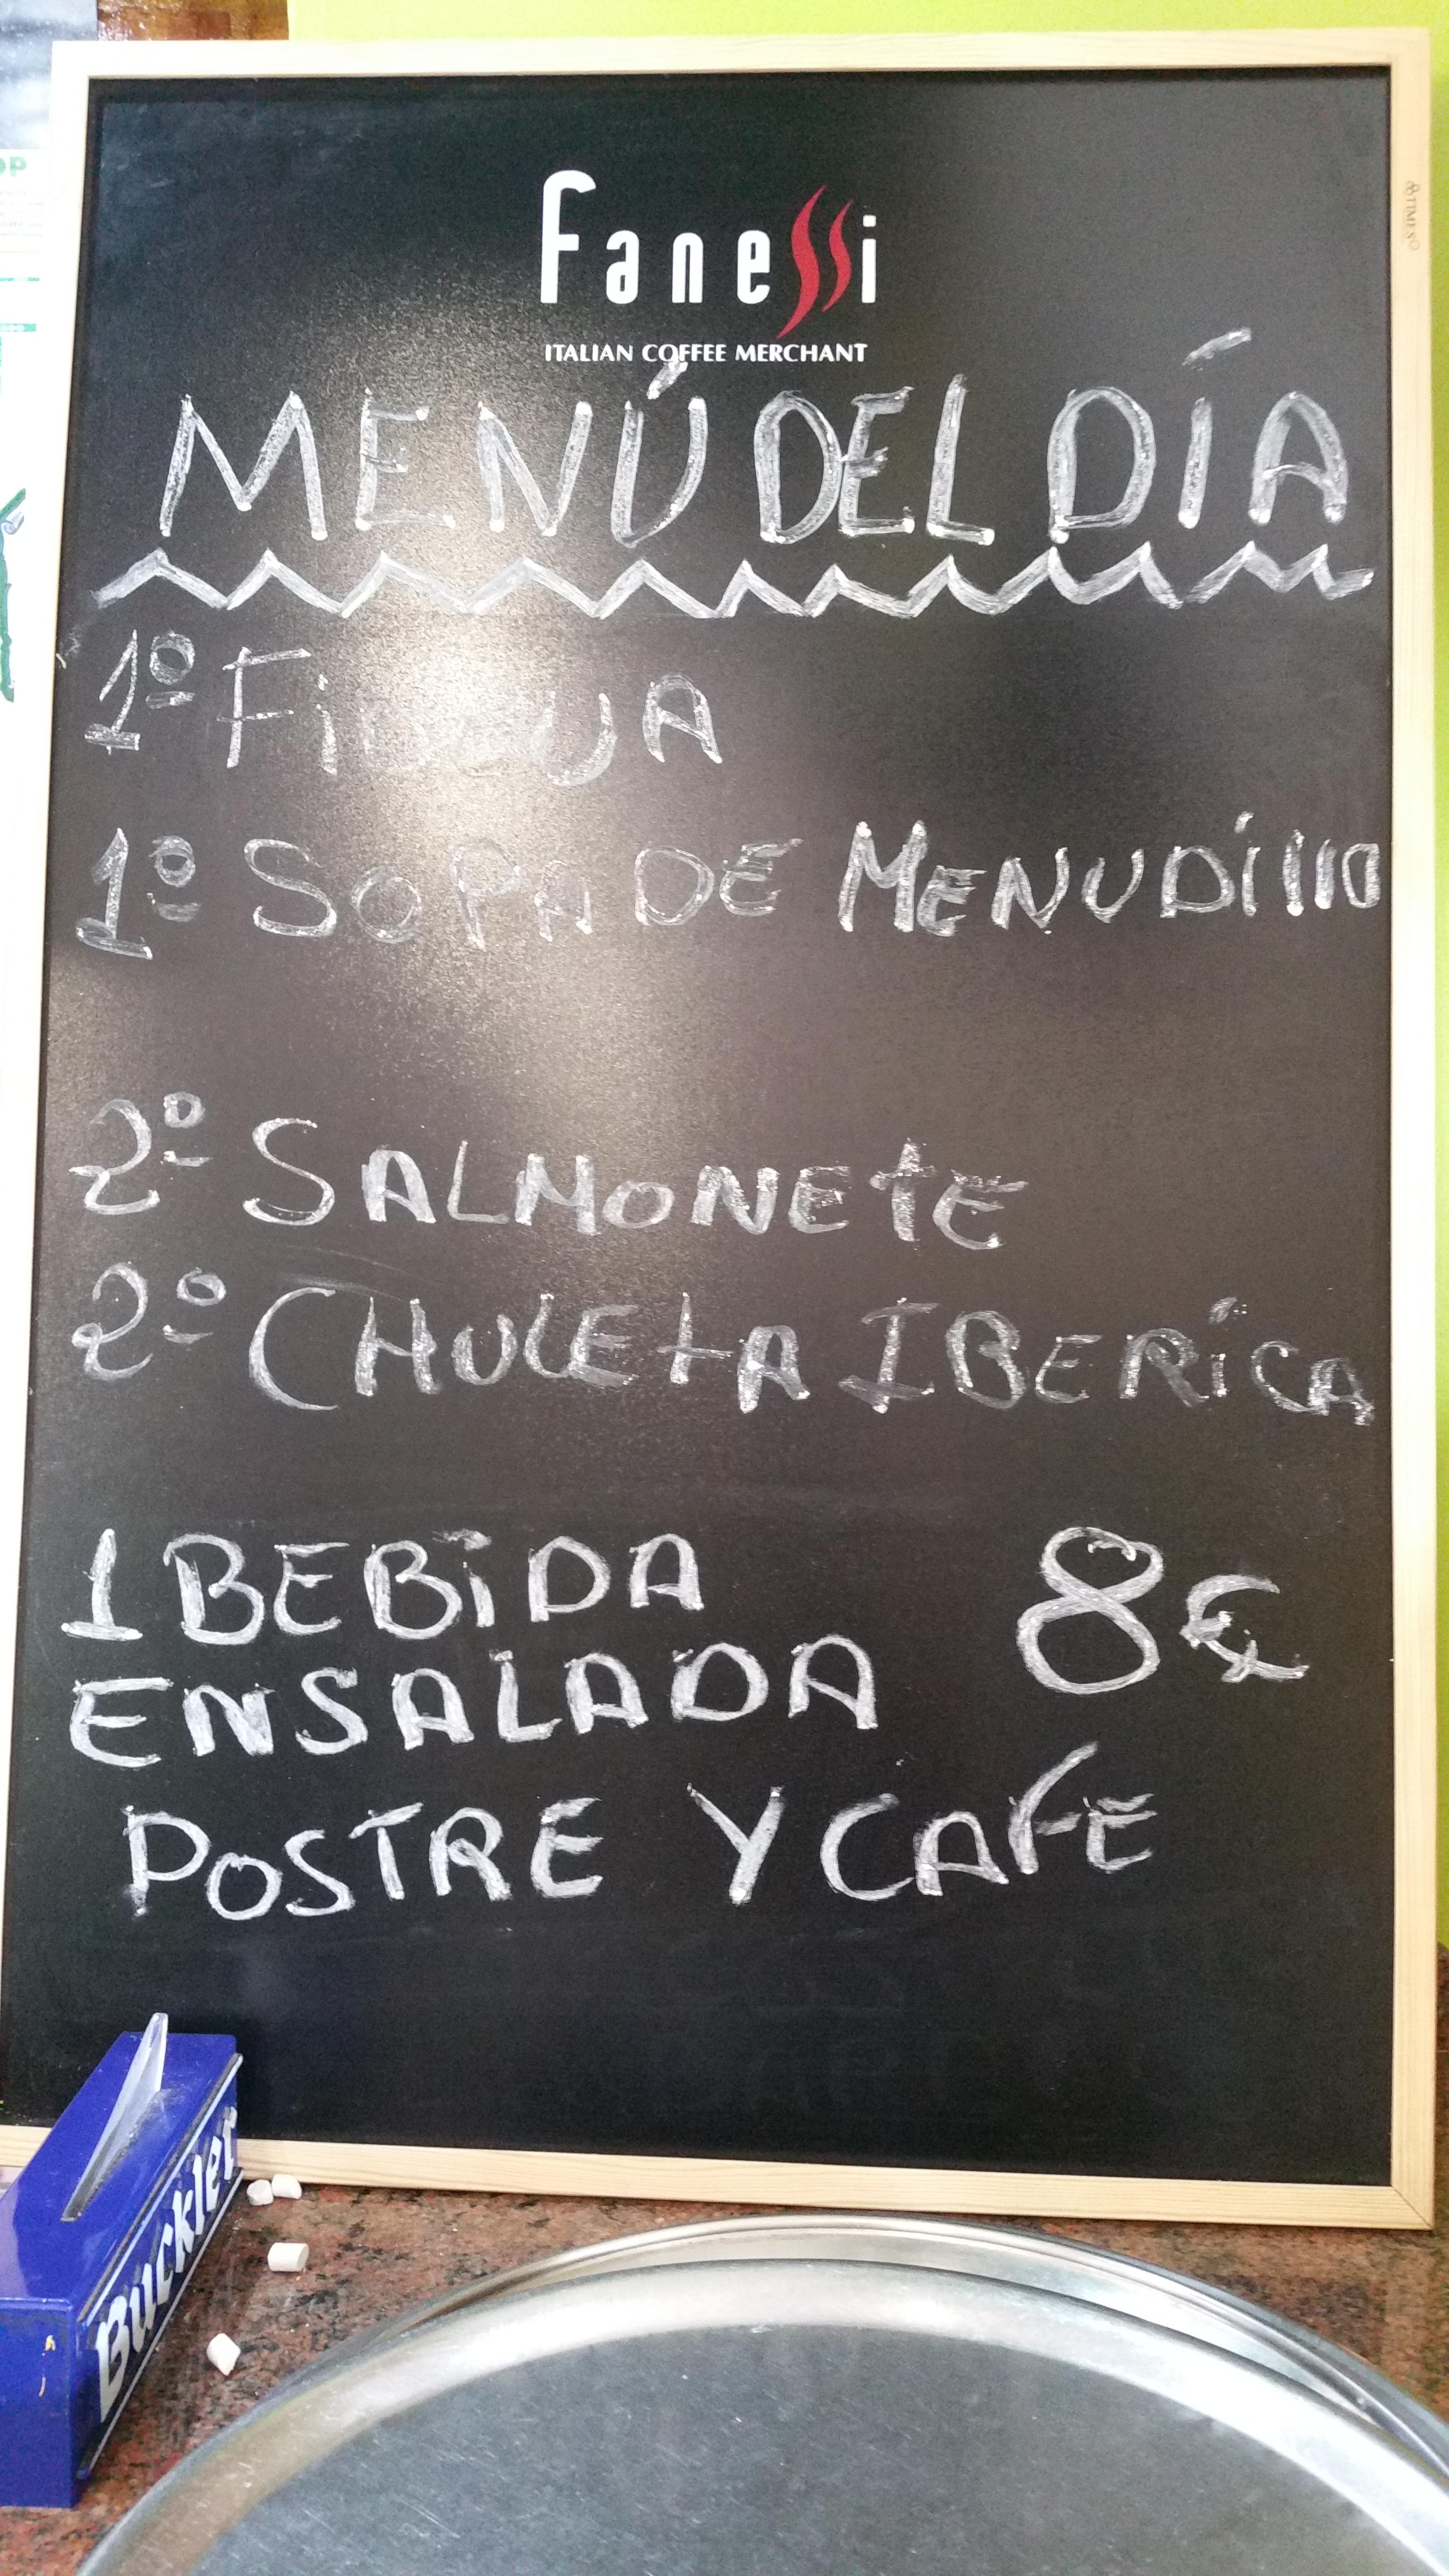 Fanessi
ITALIAN COFFEE MERCHANT
MENÚ DEL DÍA
1º FiDEUA
1º SOPA DE MENUDillO
2º SALMONEtE
2º CHULEtA IBERiCA
1 BEBiDA
8€
ENSALADA
POSTRE Y CAFE
Buckler
TIMES